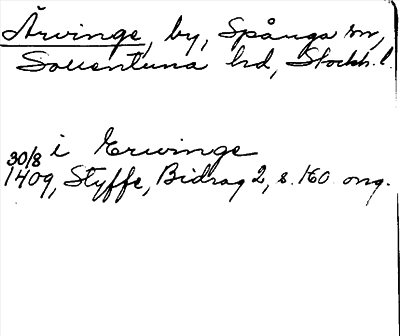 Ärvinge, by, Spånga sn,
Sollentuna hd, Stockh. l.
i Erwinge
30/8 1409, Styffe, Bidrag 2, s. 160 orig.